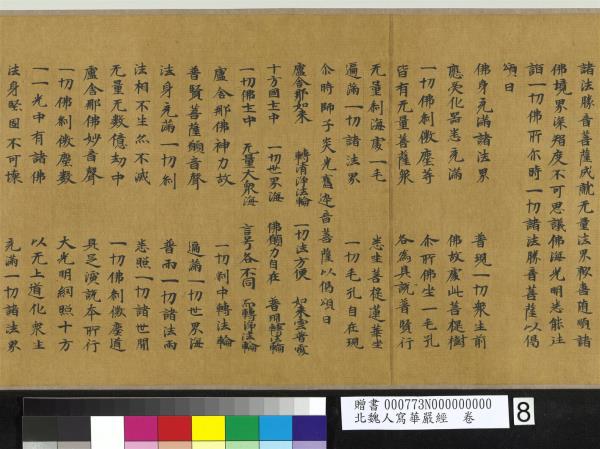 諸法勝音菩薩成就无量法界歡喜隨順諸
佛境界深智度不可思議佛海光明悉能往
詣一切佛所尒時一切諸法勝音菩薩以偈
頌曰
佛身充滿諸法界 普現一切衆生前
應受化器悉充滿 佛故處此菩提樹
一切佛刹微塵等 尒所佛坐一毛孔
皆有无量菩薩衆 各爲具說普賢行
无量刹海處一毛 悉坐菩提蓮華坐
遍滿一切諸法界 一切毛孔自在現
尒時師子炎光奮迅音菩薩以偈頌曰
盧舍那如來 轉清淨法輪 一切法方便 如來雲普覆
十方國土中 一切世界海 佛願力自在 普現轉法輪
一切佛土中 无量大衆海 言号各不同 而轉淨法輪
盧舍那佛神力故 一切刹中轉法輪
普賢菩薩願音聲 遍滿一切世界海
法身充滿一切刹 普雨一切諸法雨
法相不生亦不滅 悉照一切諸世間
无量无數億劫中 一切佛刹微塵道
盧舍那佛妙音聲 具足演說本所行
一切佛刹微塵數 大光明網照十方
一一光中有諸佛 以无上道化衆生
法身堅固不可壞 充滿一切諸法界
贈書 000773N000000000
北魏人寫華嚴經 卷
8